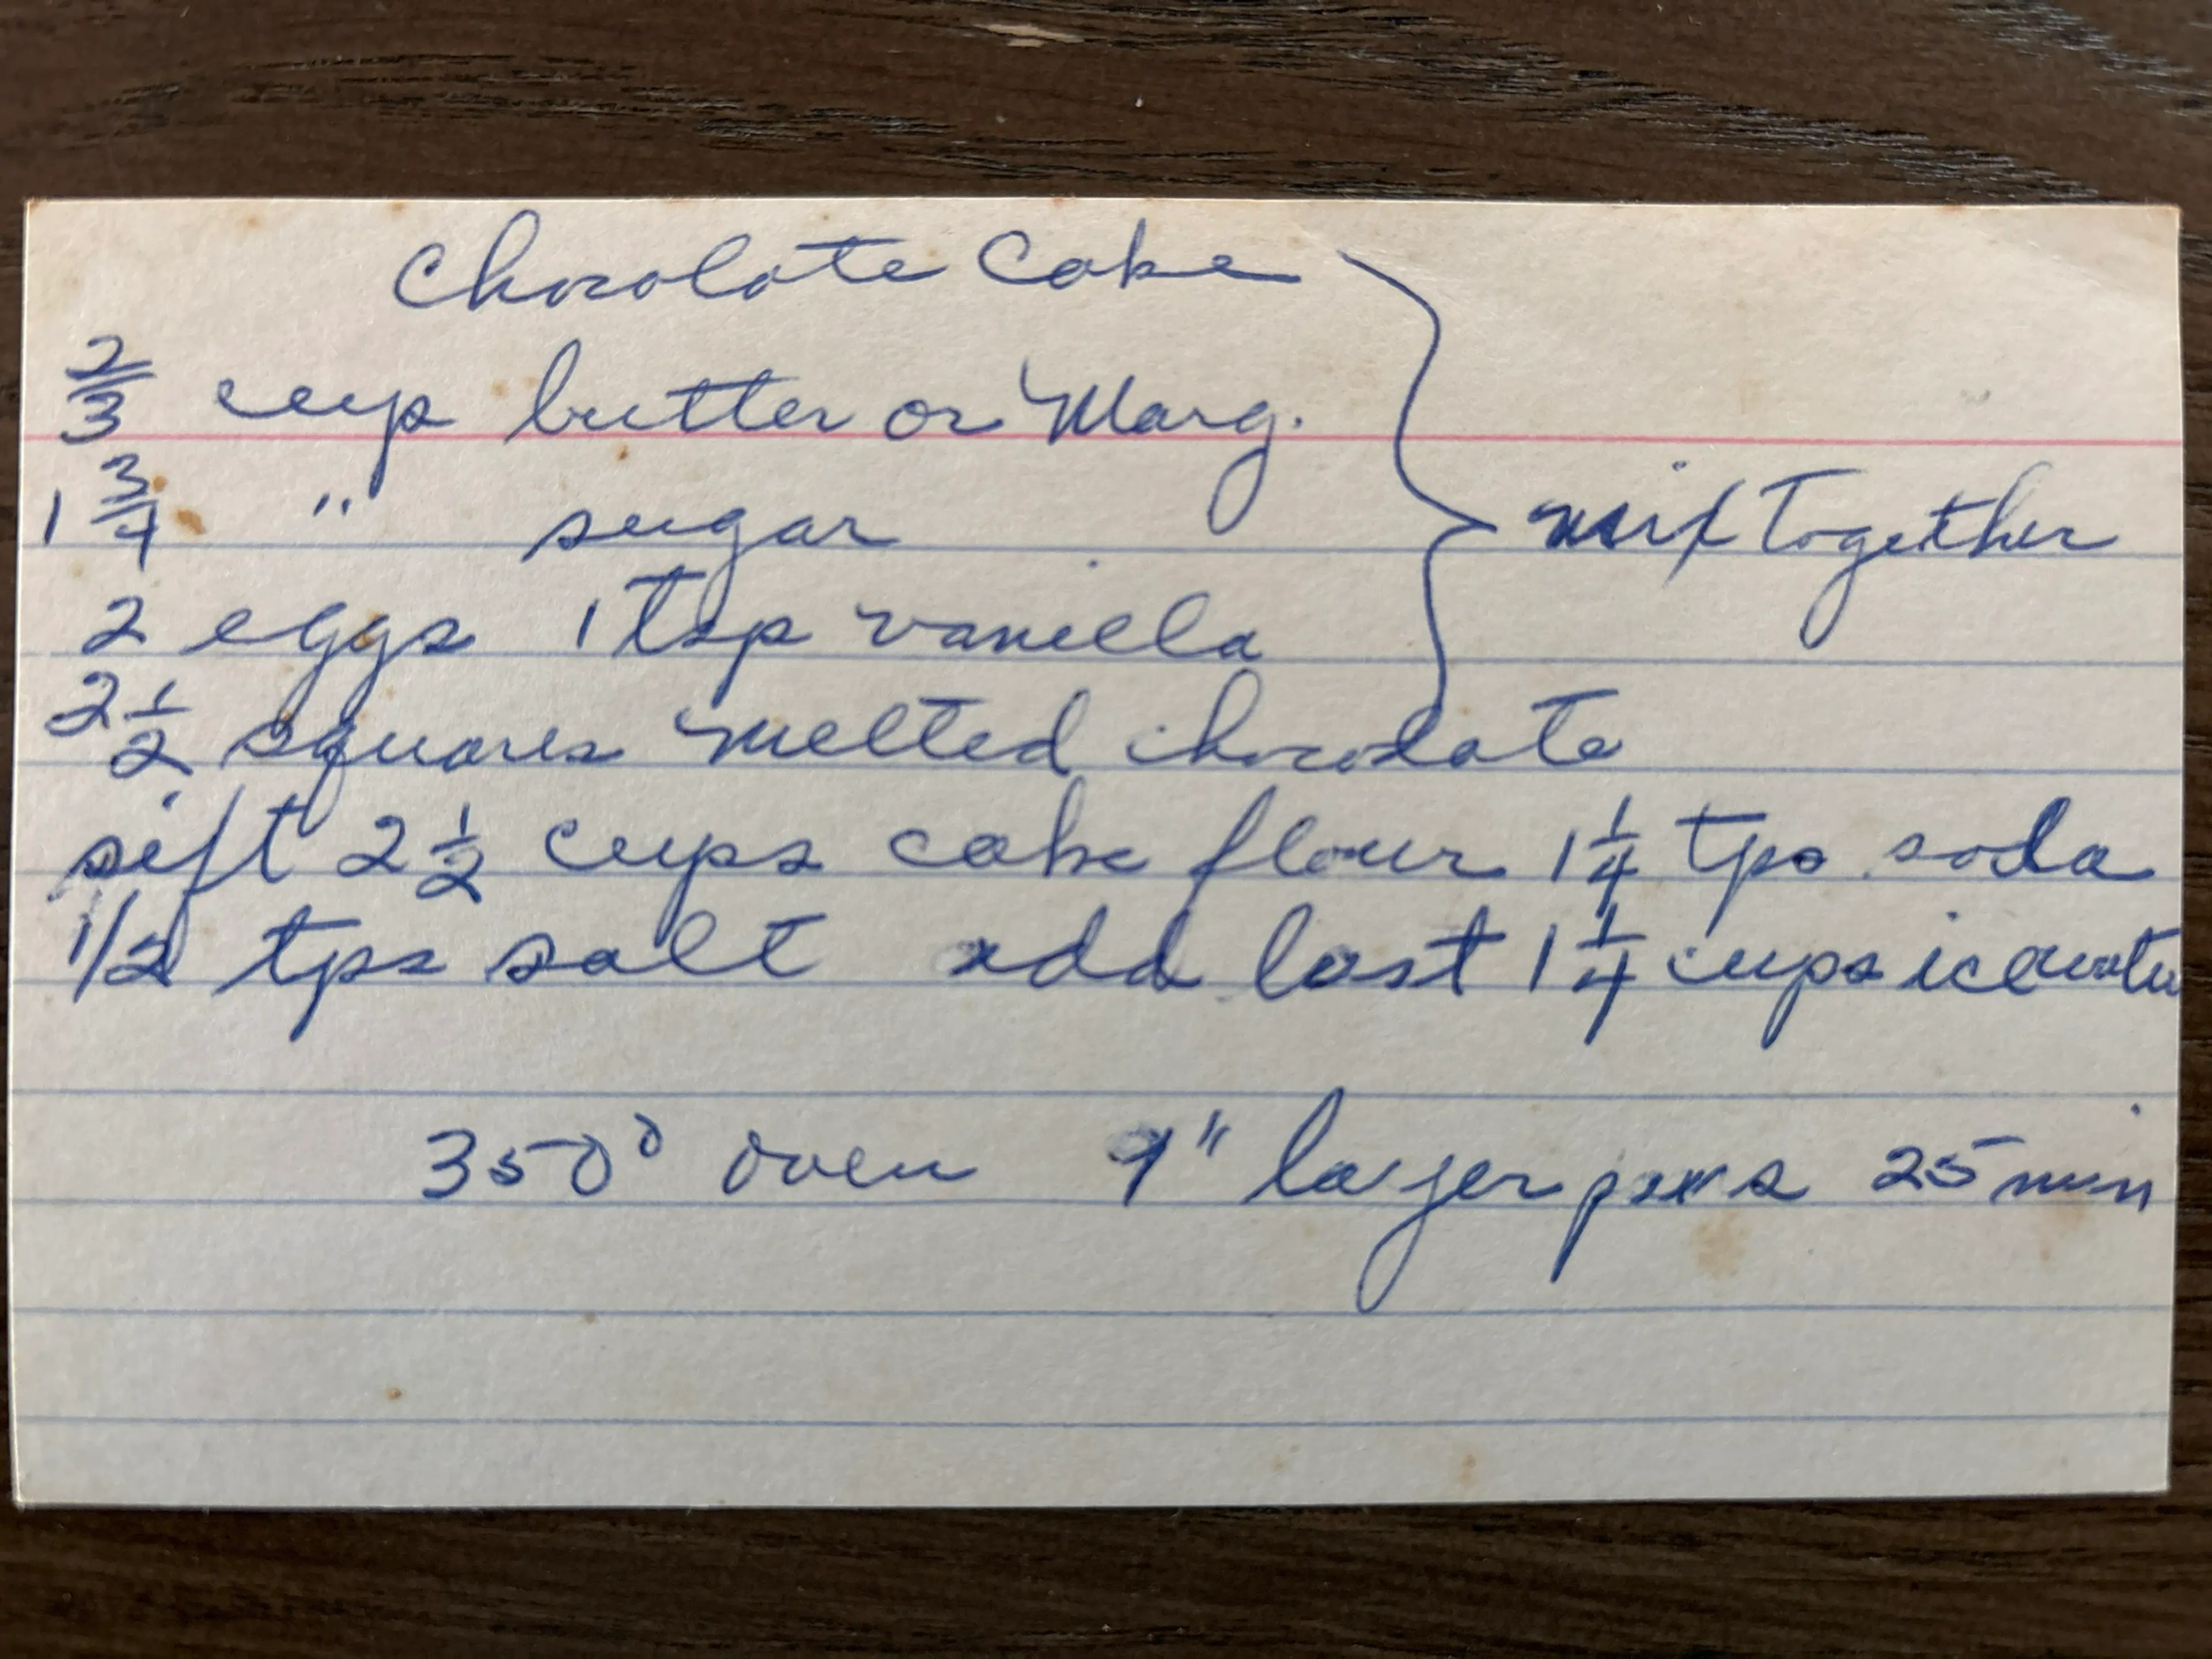 Chocolate Cake
2/3 cup butter or Marg.
1 3/4 " sugar
mix Together
2 eggs 1 tsp vanilla
2 1/2 squares melted chocolate
sift 2 1/2 cups cake flour 1 1/4 tps soda
1/2 tps salt add last 1 1/4 cups icewater
350° oven 9" layer pans 25 min